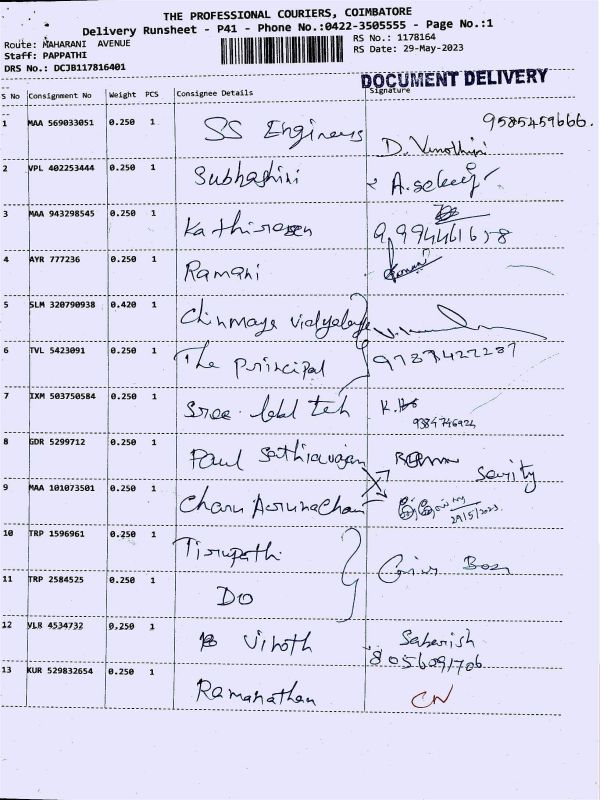 THE PROFESSIONAL COURIERS, COIMBATORE
Delivery Runsheet - P41 - Phone No.:0422-3505555 - Page No.:1
Route: MAHARANI AVENUE
Staff: PAPPATHI
DRS No.: DCJB117816401
RS No.: 1178164
RS Date: 29-May-2023
DOCUMENT DELIVERY
S No Consignment No Weight PCS Consignee Details Signature
1 MAA 569033051 0.250 1 SS Engineers D. Vinothini 9585459666.
2 VPL 402253444 0.250 1 Subhashini A. Selvaj
3 MAA 943298545 0.250 1 Kathiresen 9,994461678
4 AYR 777236 0.250 1 Ramani
5 SLM 320790938 0.420 1 Chinmaya Vidyalaya
6 TVL 5423091 0.250 1 The Principal 9787427287
7 IXM 503750584 0.250 1 Sree tech K. 9384746924
8 GDR 5299712 0.250 1 Paul Sathianagan
9 MAA 101073501 0.250 1 Charu Arunachan 29/5/2023
10 TRP 1596961 0.250 1 Tirupathi
11 TRP 2584525 0.250 1 DO Box
12 VLR 4534732 0.250 1 Vinoth Saberish 8056091706
13 KUR 529832654 0.250 1 Ramanathan CN